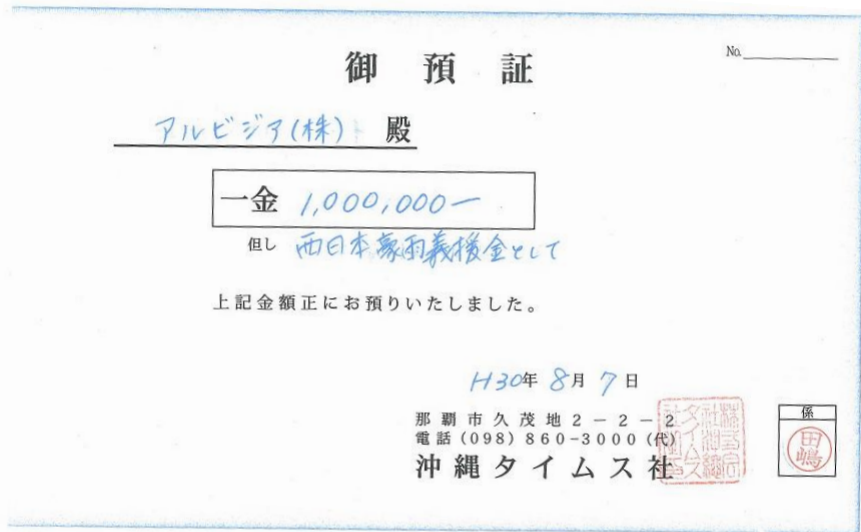 No.
御預証
アルビジア(株) 殿
一金 1,000,000ー
但し 西日本豪雨義援金として
上記金額正にお預りいたしました。
H30年 8月 7日
那覇市久茂地2-2-2
電話(098)860-3000(代)
沖縄タイムス社
係
田嶋